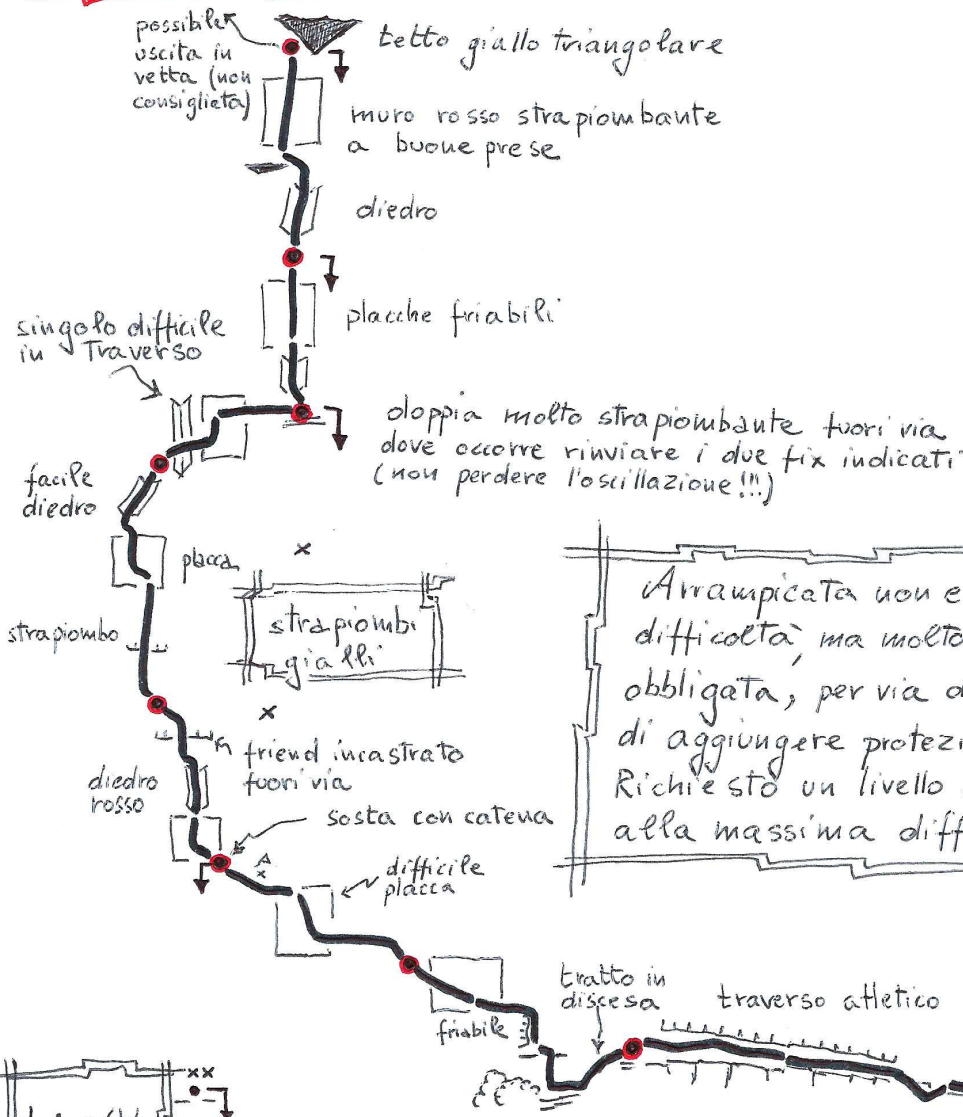 possibile
uscita in
vetta (non
consigliata)
tetto giallo triangolare
muro rosso strapiombante
a buone prese
diedro
placche friabili
singolo difficile
in Traverso
doppia molto strapiombante fuori via
dove occorre rinviare i due fix indicati
(non perdere l'oscillazione!!!)
facile
diedro
placca
strapiombo
strapiombi
gialli
Arrampicata non e
difficoltà, ma molto
obbligata, per via
di aggiungere protezi
Richiesto un livello
alla massima diff
friend incastrato
fuori via
diedro
rosso
sosta con catena
difficile
placca
tratto in
discesa
traverso atletico
friabile